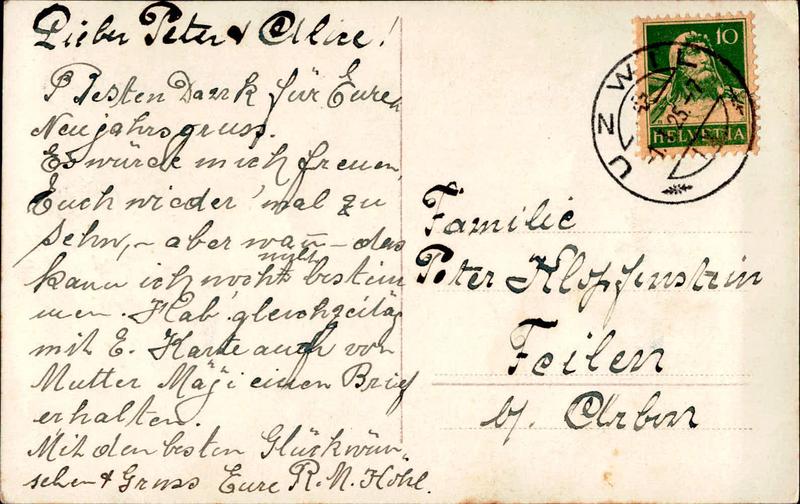 Lieber Peter & Alice!
Besten Dank für Euren
Neujahrsgruss.
Es würde mich freuen,
Euch wieder 'mal zu
sehn, – aber wan̄ – das
kann ich noch nicht bestim
men. Hab' gleichzeitig
mit E. Karte auch von
Mutter Mägi einen Brief
erhalten.
Mit den besten Glückwün-
schen & Gruss Eure R. M. Hohl.
10
HELVETIA
UZWIL
25.-7
Familie
Peter Klopfenstein
Feilen
b/ Arbon